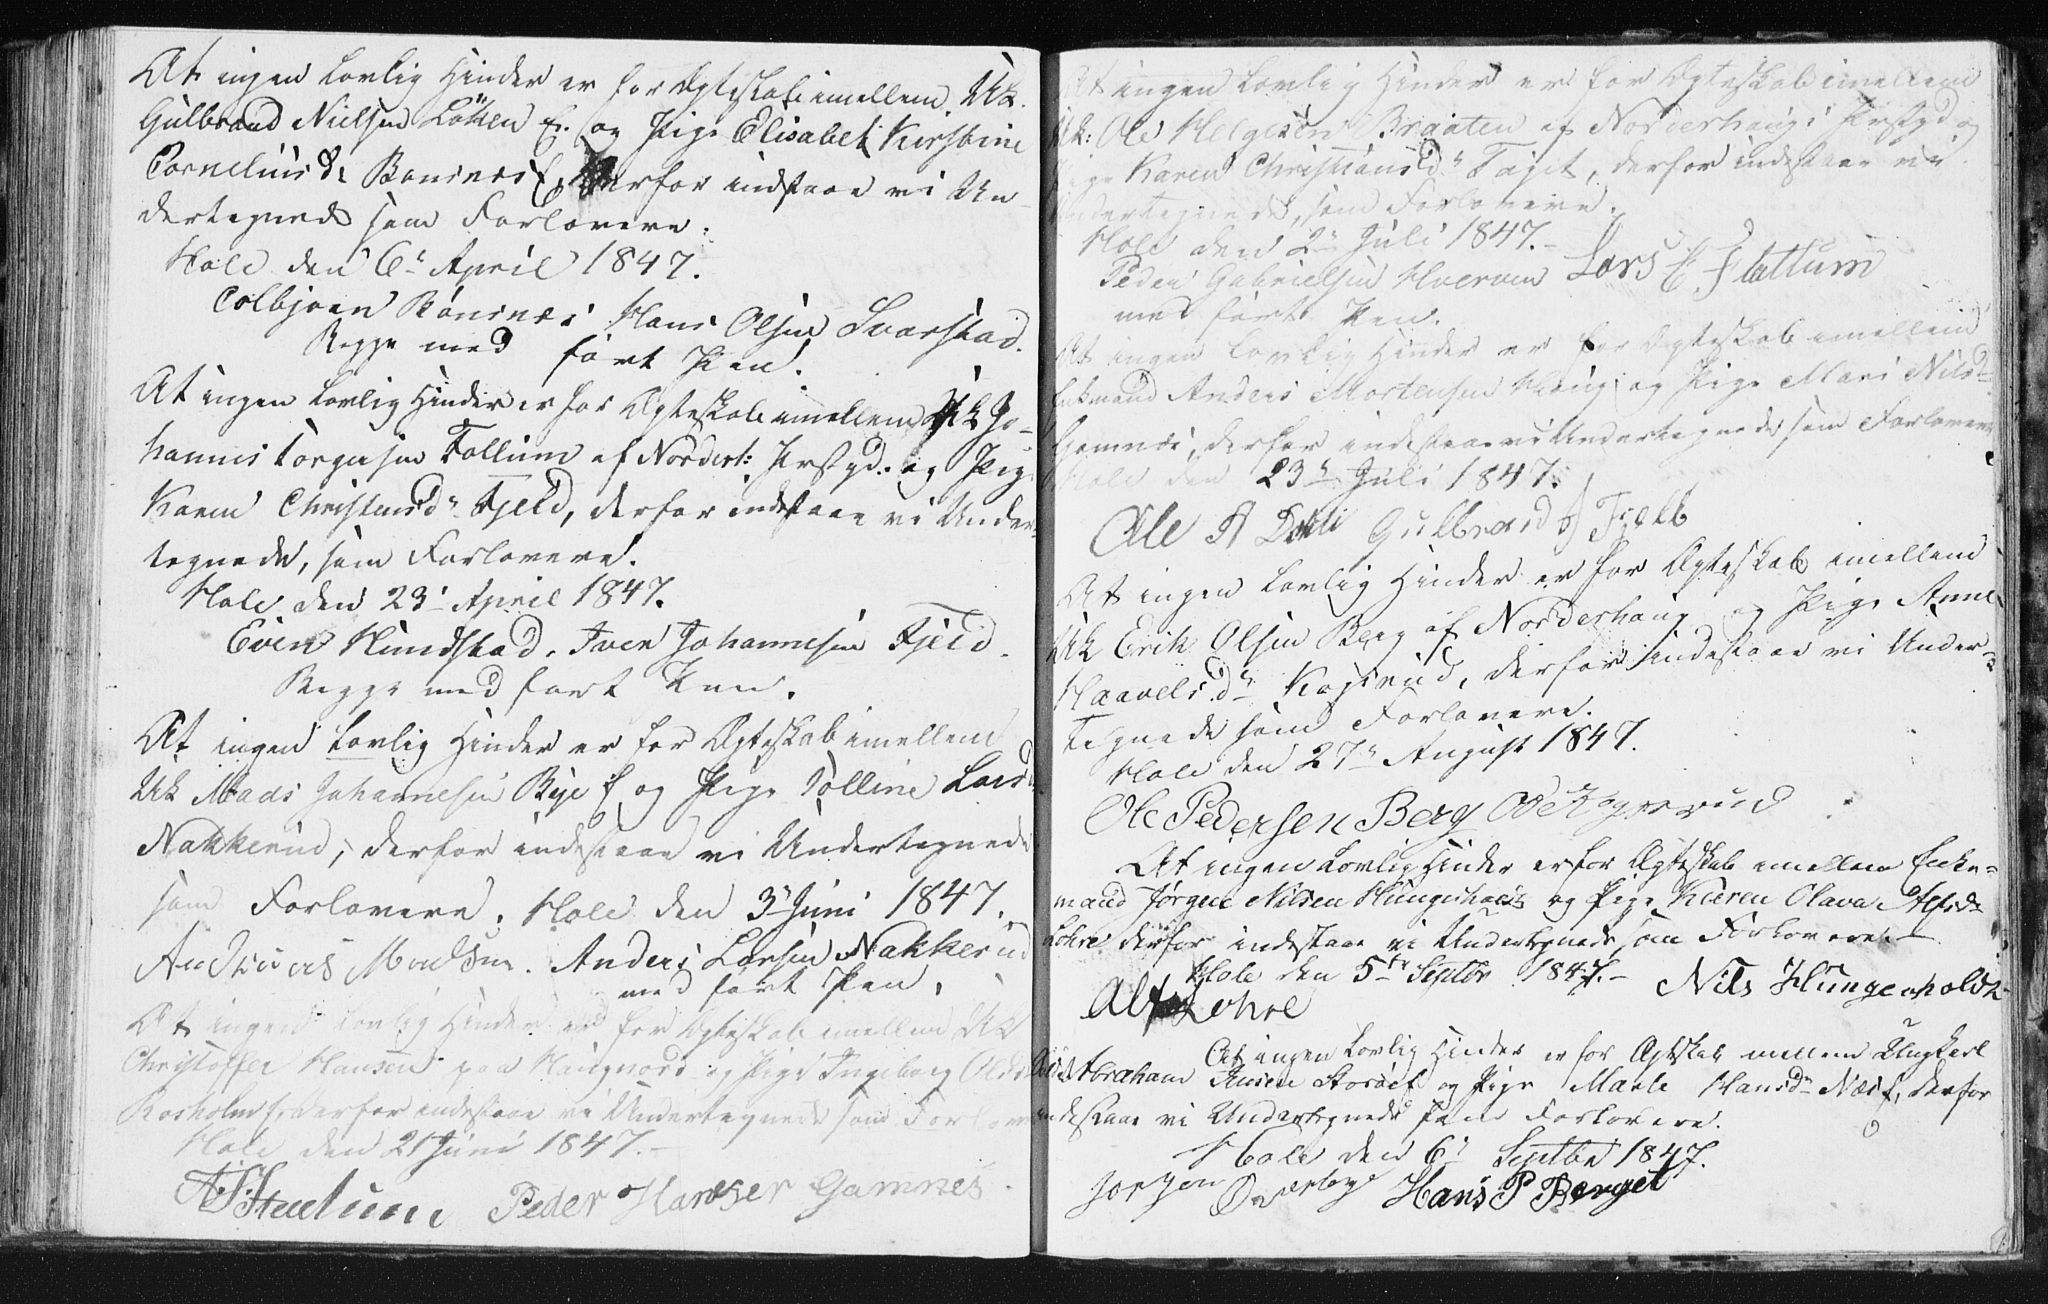 At ingen Lovlig Hinder er for Ægteskab imellem Uk.
Gulbrand Nielsen Löken E. og Pige Elisabet Kirstine
Cornelius d: Bönsnes E, derfor indstaae vi Un-
dertegnede som Forlovere.
Hole den 6te April 1847.
Colbjøen Bönsnes Hans Olsen Svarstad.
Begge med ført Pen.
At ingen Lovlig Hinder er for Ægteskab imellem Uk Jo-
hannes Torgersen Follum af Norderh: Prstgd. og Pige
Karen Christensd: Fjeld, derfor indestaae vi Under-
tegnede, som Forlovere.
Hole den 23 April 1847.
Even Hundstad. Iver Johannesen Fjeld.
Begge med ført Pen.
At ingen Lovlig Hinder er for Ægteskab imellem
Uk Mads Johannesen Bye E og Pige Olline Larsd:
Nakkerud, derfor indestaae vi Undertegnede
som Forlovere. Hole den 3 Juni 1847.
Madsen. Anders Larsen Nakkerud
med ført Pen.
At ingen Lovlig Hinder er for Ægteskab imellem Uk
Christoffer Hansen paa og Pige Ingeborg Olsd:
derfor indestaae vi Undertegnede som Forlovere
Hole den 21 Juni 1847.
Peder Hansen Gamnes.
At ingen Lovlig Hinder er for Ægteskab imellem
Uk: Ole Helgesen Braaten af Norderhaugs Prstgd og
Pige Karen Christiansd: derfor indestaae vi
Undertegnede, som Forlovere.
Hole den 2 Juli 1847.
Peder Gabrielsen Hverven Lars E Flattum
med ført Pen.
At ingen Lovlig Hinder er for Ægteskab imellem
Enkmand Anders Mortensen Haug og Pige Mari Nilsd:
Gamnes, derfor indestaae vi Undertegnede som Forlovere
Hole den 23 Juli 1847.
Ole A Gulbrand Fjeld
At ingen Lovlig Hinder er for Ægteskab imellem
Uk Erik Olsen Berg af Norderhaug og Pige Anne
Haavelsd: Kogsrud, derfor indestaae vi Under-
tegnede som Forlovere.
Hole den 27 August 1847.
Ole Pedersen Berg Ole Kogsrud
At ingen Lovlig Hinder er for Ægteskab imellem Enke-
mand Jørgen Nilsen Hungerholt og Pige Karen Olava Alfsd:
Lohre derfor indestaae vi Undertegnede som Forlovere.
Hole den 5te Septbr 1847. Nils Hungerholdt
Alf Lohre
At ingen Lovlig Hinder er for Ægteskab mellem Ungkarl
Abraham Jensen Storöen og Pige Marte Hansd: Næs E, derfor
indestaae vi Undertegnede som Forlovere.
Hole den 6 Septbr 1847.
Jorgen Hans P Berget